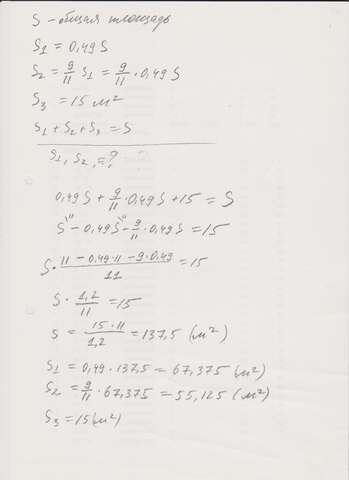 S - общая площадь
S₁ = 0,49 S
S₂ = 9/11 S₁ = 9/11 · 0,49 S
S₃ = 15 м²
S₁ + S₂ + S₃ = S
S₁, S₂, = ?
0,49 S + 9/11 · 0,49 S + 15 = S
S\11 - 0,49 S\11 - 9/11 · 0,49 S = 15
S · (11 - 0,49·11 - 9·0,49)/11 = 15
S · 1,2/11 = 15
S = 15·11/1,2 = 137,5 (м²)
S₁ = 0,49 · 137,5 = 67,375 (м²)
S₂ = 9/11 · 67,375 = 55,125 (м²)
S₃ = 15 (м²)